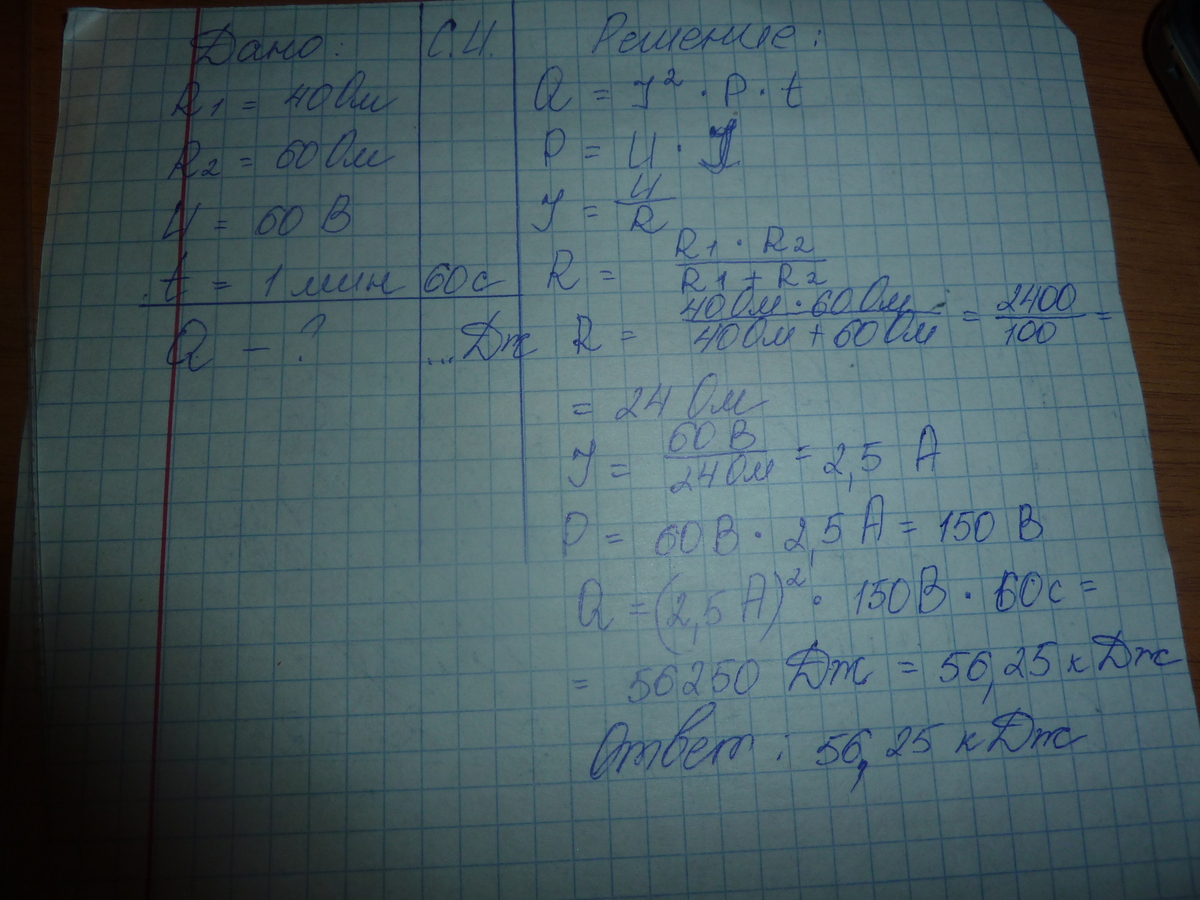 Дано: С.И. Решение:
R1 = 40 Ом
R2 = 60 Ом
U = 60 В
t = 1 мин 60с
Q - ? ...Дж
Q = I² · P · t
P = U · I
I = U/R
R = R1 · R2 / R1 + R2
R = 40 Ом · 60 Ом / 40 Ом + 60 Ом = 2400/100 =
= 24 Ом
I = 60 В / 24 Ом = 2,5 А
P = 60 В · 2,5 А = 150 В
Q = (2,5 А)² · 150 В · 60с =
= 56250 Дж = 56,25 кДж
Ответ: 56,25 кДж